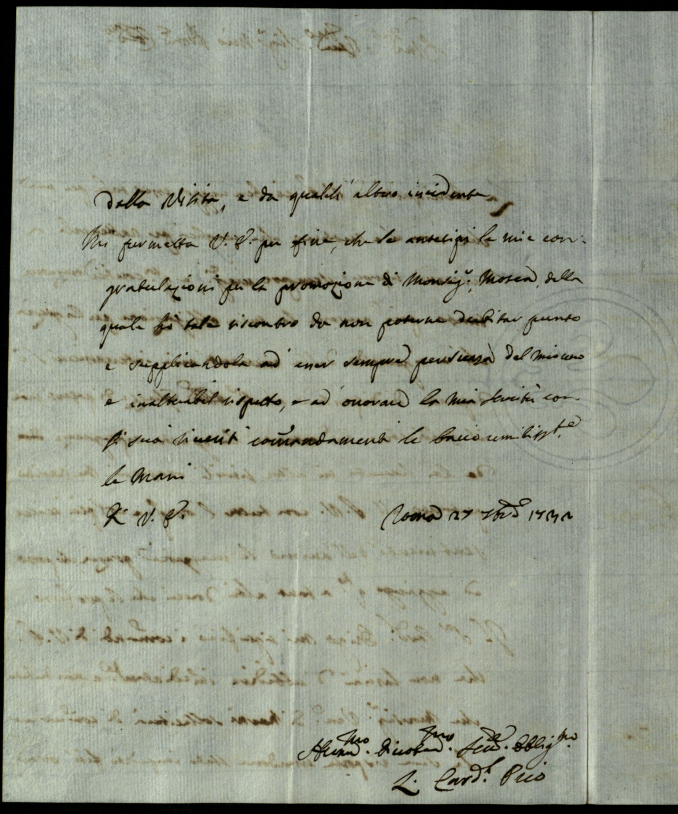 dalla Visita, e da qualch' altro incidente
Mi permetta V. E. per fine, che le anticipi le mie con-
gratulazioni per la promozione di Monsig.r Mosca, della
quale hò tale riscontro da non poterne dubitar punto
e supplicandola ad esser sempre persuasa del mio
e inalterabil rispetto, e ad onorare la mia servitù con
si suoi riveriti comandamenti le bacio umiliss.te
le Mani
D. V. E. Roma 27 7bre 1732
Aff.mo Divotis.mo Ser.re Obblig.mo
L. Card.l Pio